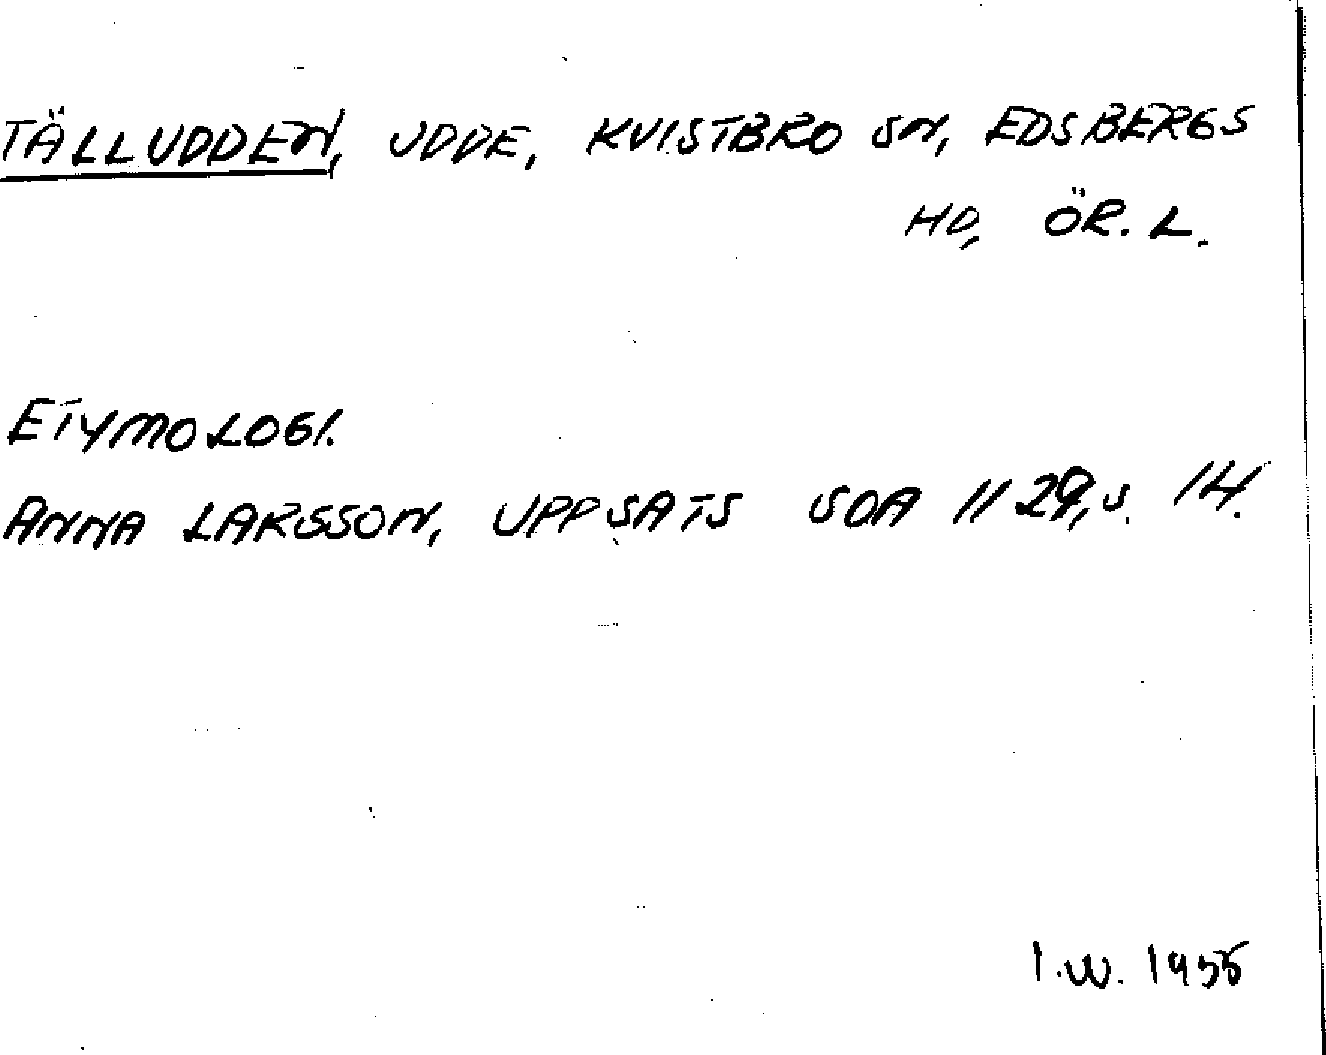 TÄLLUDDEN, UDDE, KVISTBRO SN, EDSBERGS
HD, ÖR. L.
ETYMOLOGI.
ANNA LARSSON, UPPSATS SOA 1129, S. 14.
I.W. 1955